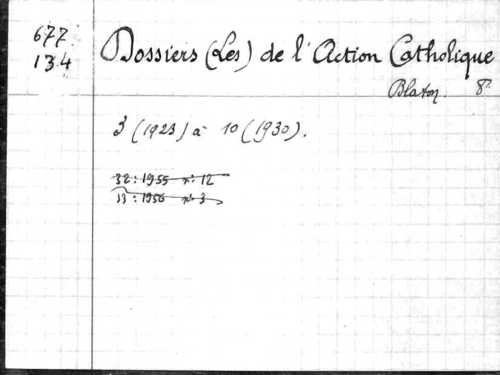 677
134
Dossiers (Les) de l'Action Catholique
Blaton. 8°
3 (1923) à 10 (1930).
32 : 1955 n° 12
33 : 1956 n° 3